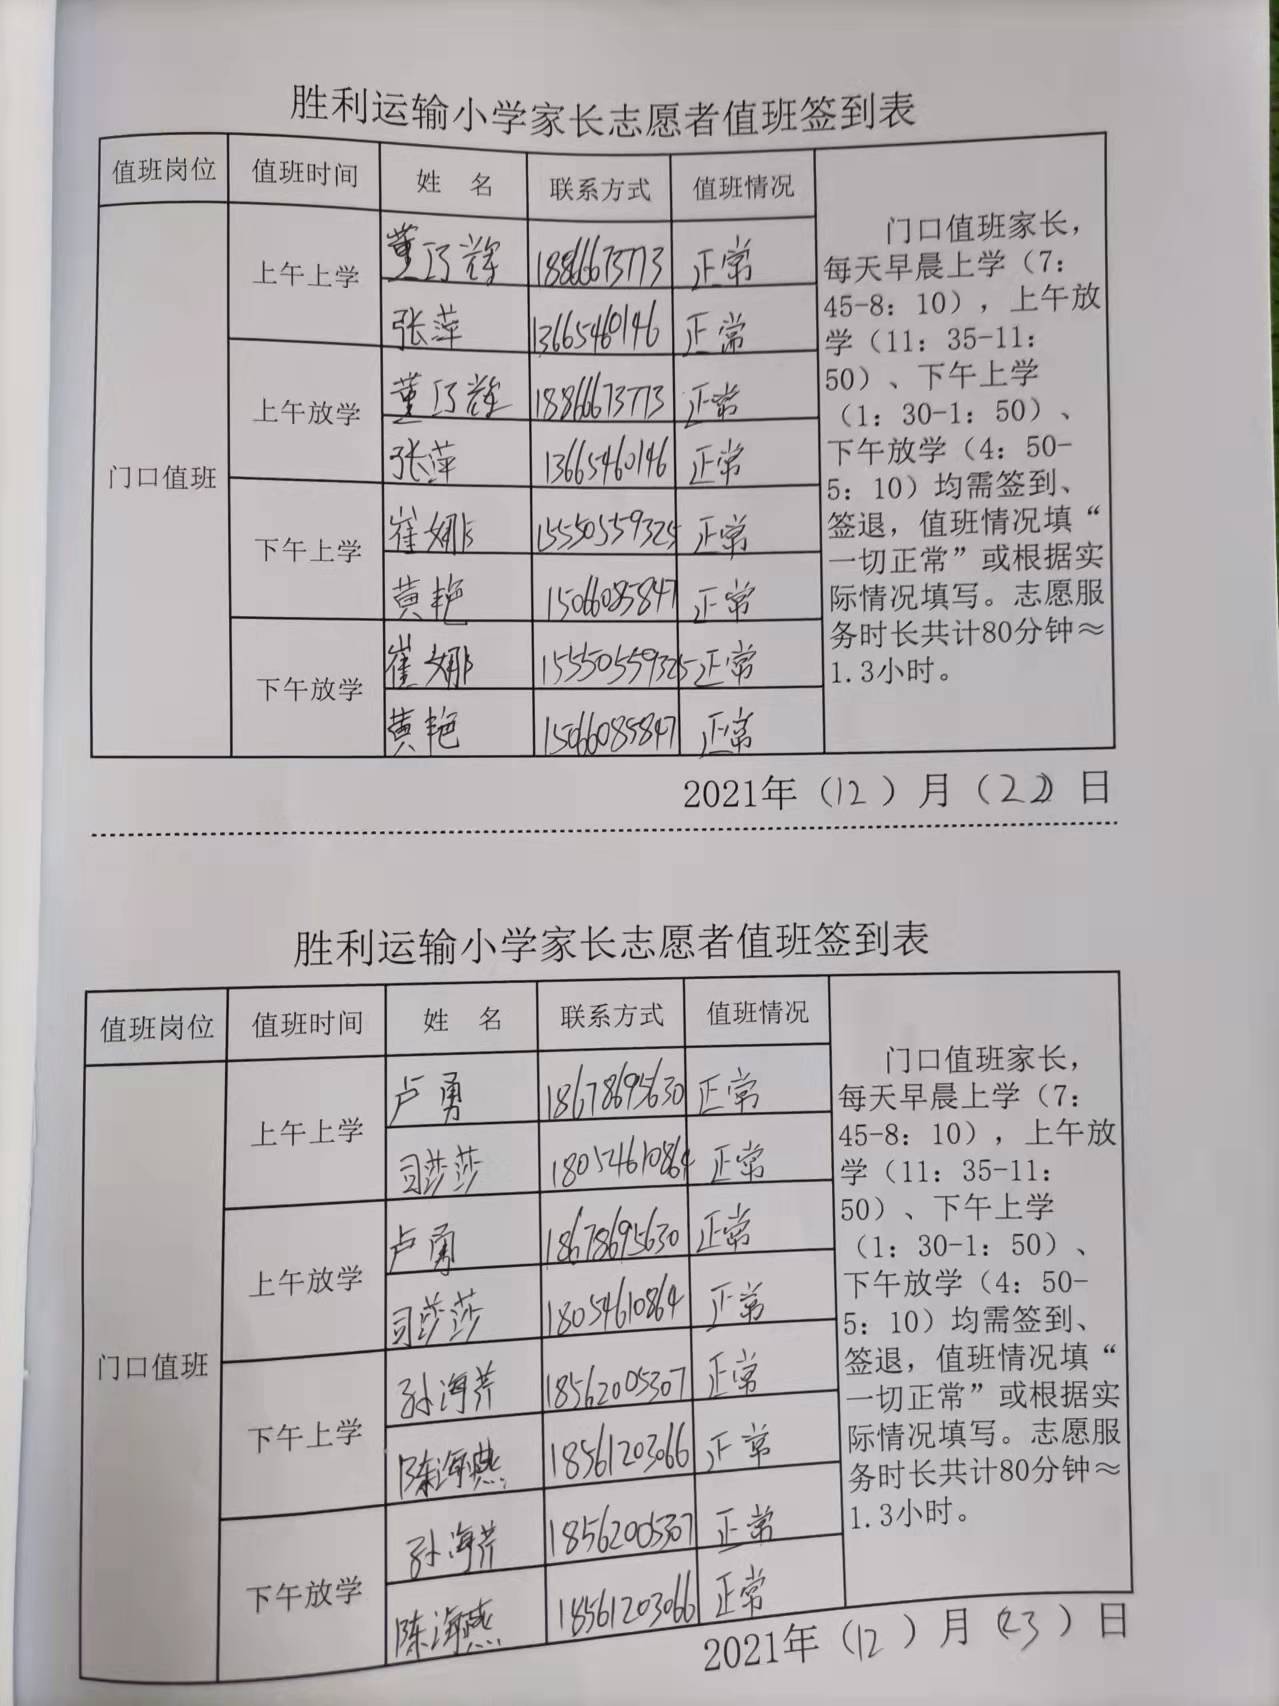 胜利运输小学家长志愿者值班签到表
值班岗位 值班时间 姓 名 联系方式 值班情况
门口值班家长，
每天早晨上学（7：
45-8：10），上午放
学（11：35-11：
50）、下午上学
（1：30-1：50）、
下午放学（4：50-
5：10）均需签到、
签退，值班情况填“
一切正常”或根据实
际情况填写。志愿服
务时长共计80分钟≈
1.3小时。
门口值班
上午上学
董巧辉 18866673773 正常
张萍 13665460146 正常
上午放学
董巧辉 18866673773 正常
张萍 13665460146 正常
下午上学
崔娜 15550559325 正常
黄艳 15066085847 正常
下午放学
崔娜 15550559325 正常
黄艳 15066085847 正常
2021年（12）月（22）日
胜利运输小学家长志愿者值班签到表
值班岗位 值班时间 姓 名 联系方式 值班情况
门口值班家长，
每天早晨上学（7：
45-8：10），上午放
学（11：35-11：
50）、下午上学
（1：30-1：50）、
下午放学（4：50-
5：10）均需签到、
签退，值班情况填“
一切正常”或根据实
际情况填写。志愿服
务时长共计80分钟≈
1.3小时。
门口值班
上午上学
卢勇 18678695630 正常
司莎莎 18054610864 正常
上午放学
卢勇 18678695630 正常
司莎莎 18054610864 正常
下午上学
孙海芹 18562005307 正常
陈海燕 18561203066 正常
下午放学
孙海芹 18562005307 正常
陈海燕 18561203066 正常
2021年（12）月（23）日